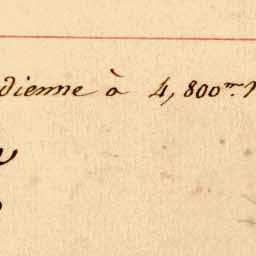 dienne à 4,800m.